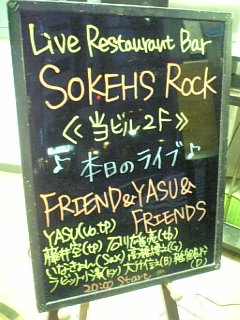 Live Restaurant Bar
SOKEHS ROCK
≪当ビル2F≫
♪本日のライブ♪
FRIEND&YASU&
FRIENDS
YASU(vo.tp)
藤井空(tp) 石川広行(tb)
いなきょん(Sax) 高橋 (G)
ラビット小澤(Key) 大竹 (B)
(D)
20:00 Start